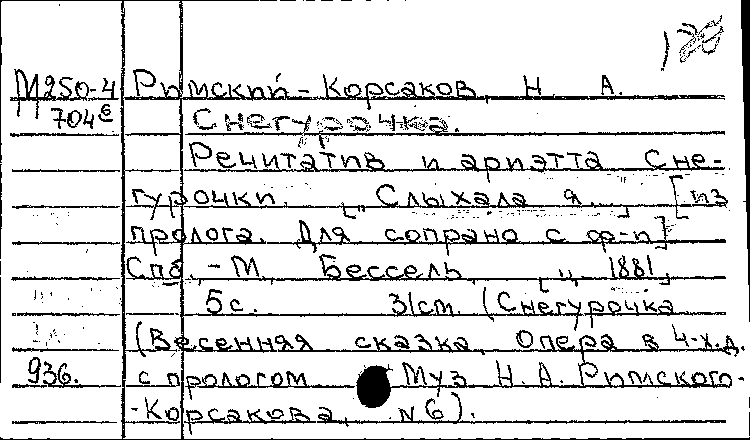 М250-4 Римский-Корсаков, Н. А.
704е Снегурочка.
Речитатив и ариэтта Сне-
гурочки. [„Слыхала я...“] [из
пролога. Для сопрано с ф-п]
Спб. - М, Бессель, [1881]
5 с. 31 cm. (Снегурочка
(Весенняя сказка. Опера в 4-х. д.
936. с прологом Муз Н. А. Римского-
-Корсакова, N 6).